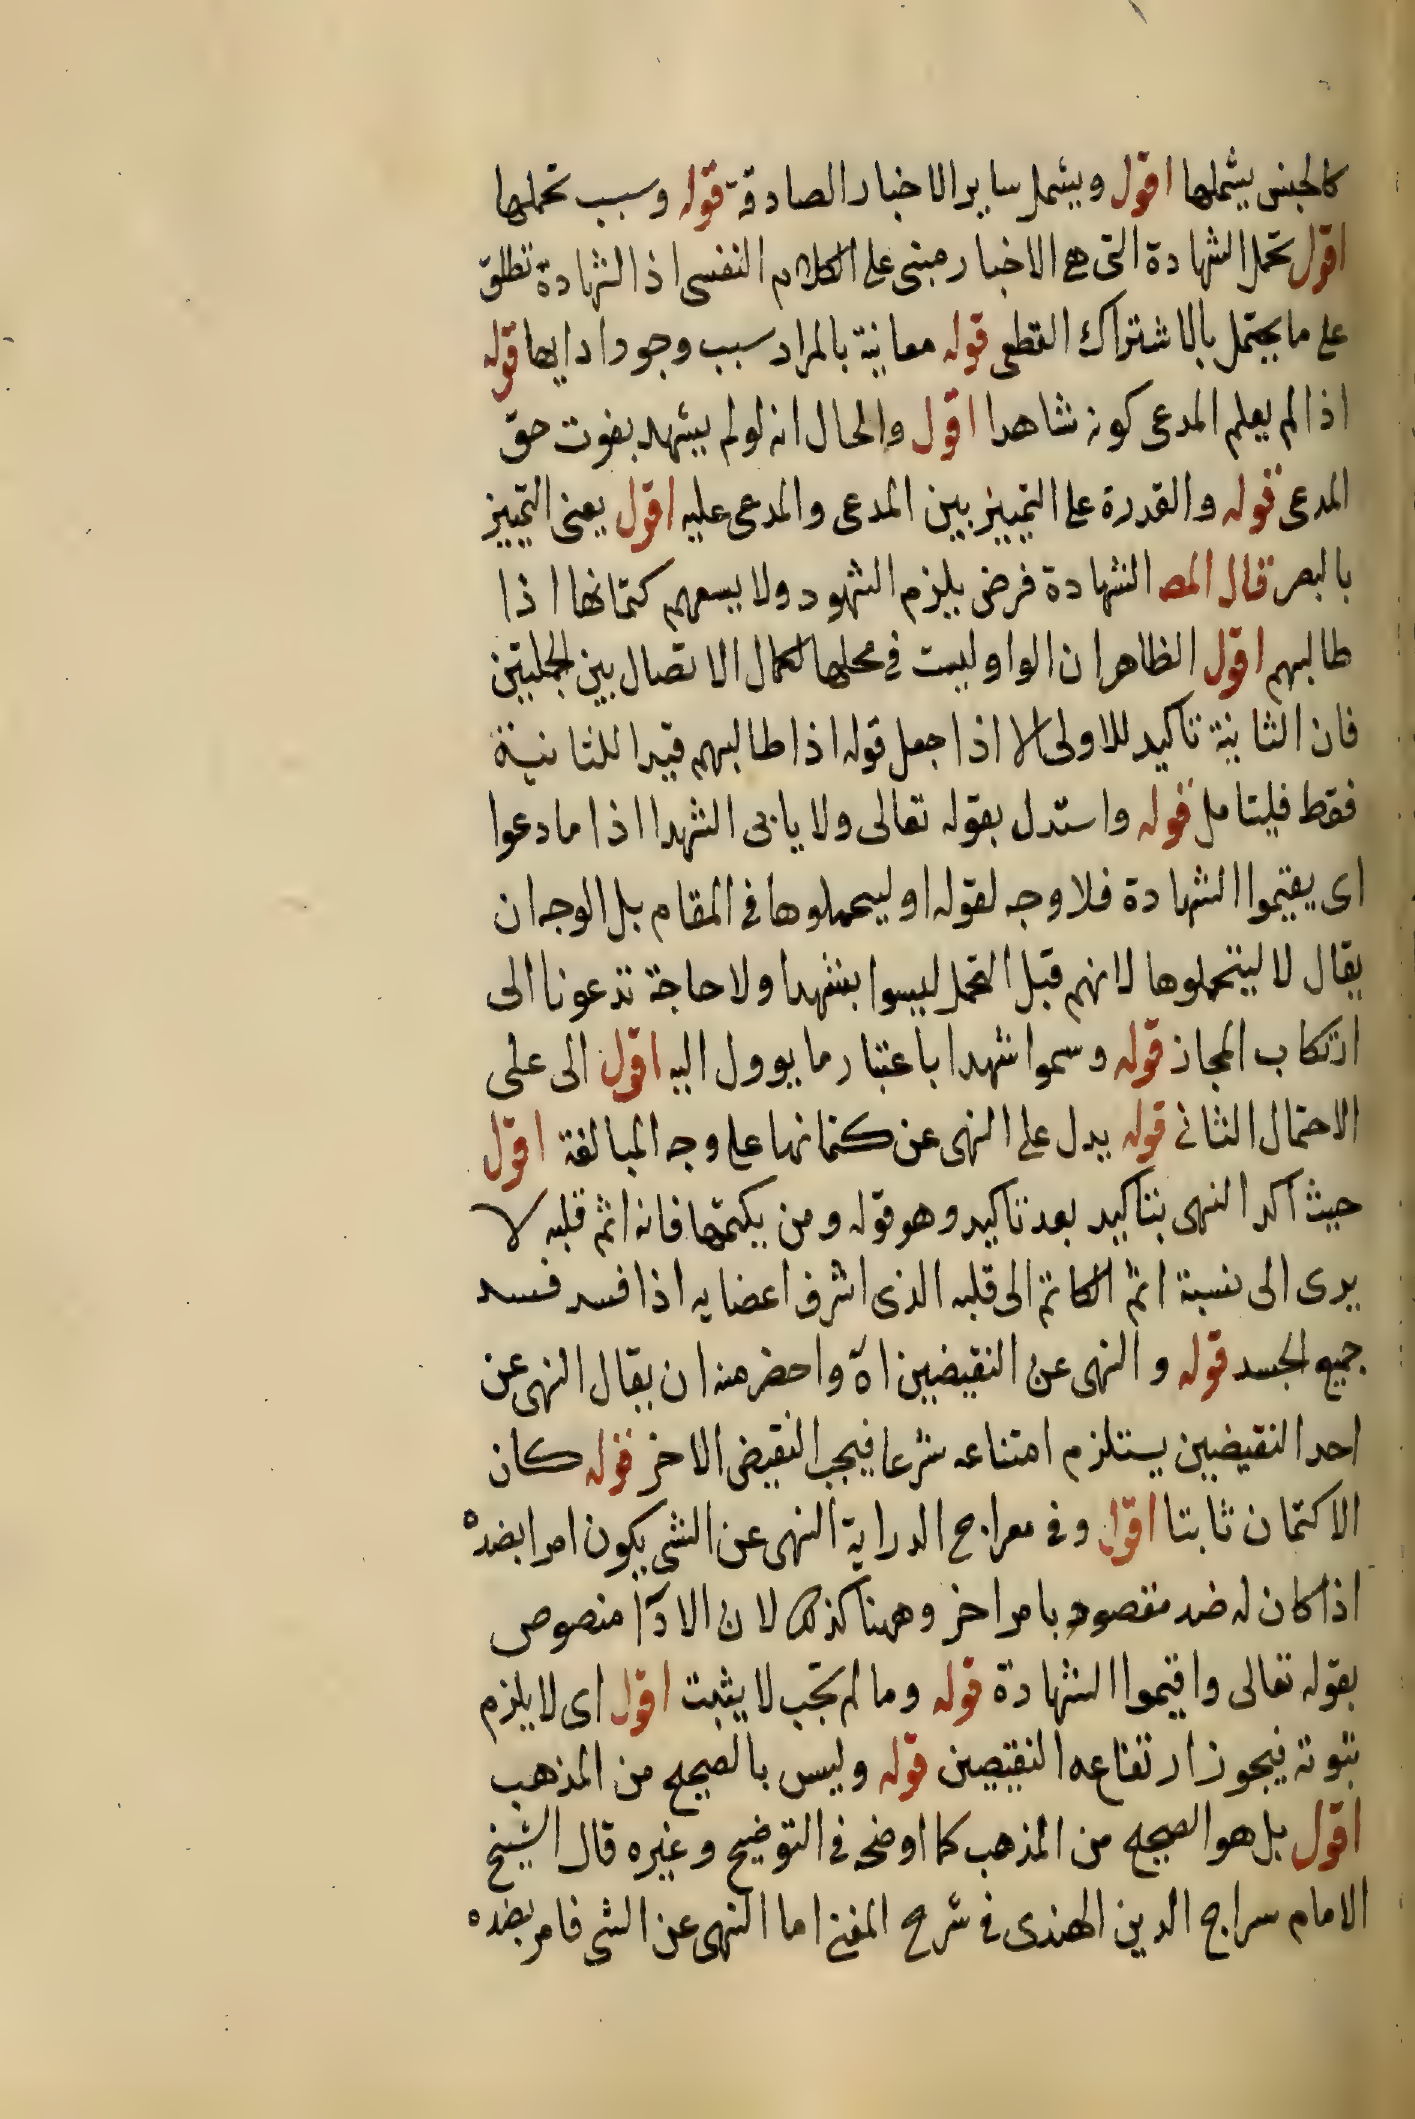 كالجنس يشملها اقول ويشمل ساير الاخبار الصادقة قوله وسبب تحملها
اقول تحمل الشهادة التى هى الاخبار مبنى على الكلام النفسى اذ الشهادة تطلق
على ما يحتمل بالاشتراك اللفظى قوله معاينة بالمراد سبب وجود ادايها قوله
اذا لم يعلم المدعى كونه شاهدا اقول والحال انه لو لم يشهد يفوت حق
المدعى قوله والقدرة على التمييز بين المدعى والمدعى عليه اقول يعنى التمييز
بالبصر قال المص الشهادة فرض يلزم الشهود ولا يسعهم كتمانها اذا
طالبهم اقول الظاهر ان الواو ليست فى محلها لكمال الاتصال بين الجملتين
فان الثانية تاكيد للاولى الا اذا جعل قوله اذا طالبهم قيدا للثانية
فقط فليتامل قوله واستدل بقوله تعالى ولا يابى الشهدا اذا ما دعوا
اى يقيموا الشهادة فلا وجه لقوله او ليتحملوها فى المقام بل الوجه ان
يقال لا ليتحملوها لانهم قبل التحمل ليسوا بشهدا ولا حاجة تدعونا الى
ارتكاب المجاز قوله وسموا شهدا باعتبار ما يوول اليه اقول الى على
الاحتمال الثانى قوله يدل على النهى عن كتمانها على وجه المبالغة اقول
حيث اكد النهى بتاكيد بعد تاكيد وهو قوله ومن يكتمها فانه اثم قلبه لا
يرى الى نسبة اثم الكاتم الى قلبه الذى اشرف اعضايه اذا فسد فسد
جميع الجسد قوله والنهى عن النقيضين اه واحضر منه ان يقال النهى عن
احد النقيضين يستلزم امتناعه شرعا فيجب النقيض الاخر قوله كان
الاكتمان ثابتا اقول وفى معراج الدراية النهى عن الشى يكون امرا بضده
اذا كان له ضد مقصود بامر اخر وههنا كذلك لان الادآ منصوص
بقوله تعالى واقيموا الشهادة قوله وما لم تجب لا يثبت اقول اى لا يلزم
ثبوته فيجوز ارتفاعه النقيضين قوله وليس بالصحيح من المذهب
اقول بل هو الصحيح من المذهب كما اوضح فى التوضيح وغيره قال الشيخ
الامام سراج الدين الهندى فى شرح المغنى اما النهى عن الشى فامر بضده